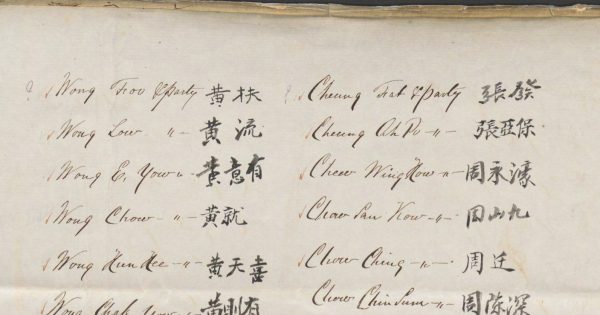 Wong Foo & Party 黄扶
Wong Low 〃 黄流
Wong E. Yow 〃 黄意有
Wong Chow 〃 黄就
Wong Hun Hee 〃 黄天喜
Wong Chak Yow 〃 黄剛有
Cheung Fat & Party 張發
Cheung Ah Po 〃 張亞保
Chow Wing How 〃 周永濠
Chow San Kow 〃 周山九
Chow Ching 〃 周廷
Chow Chin Sum 〃 周陈深